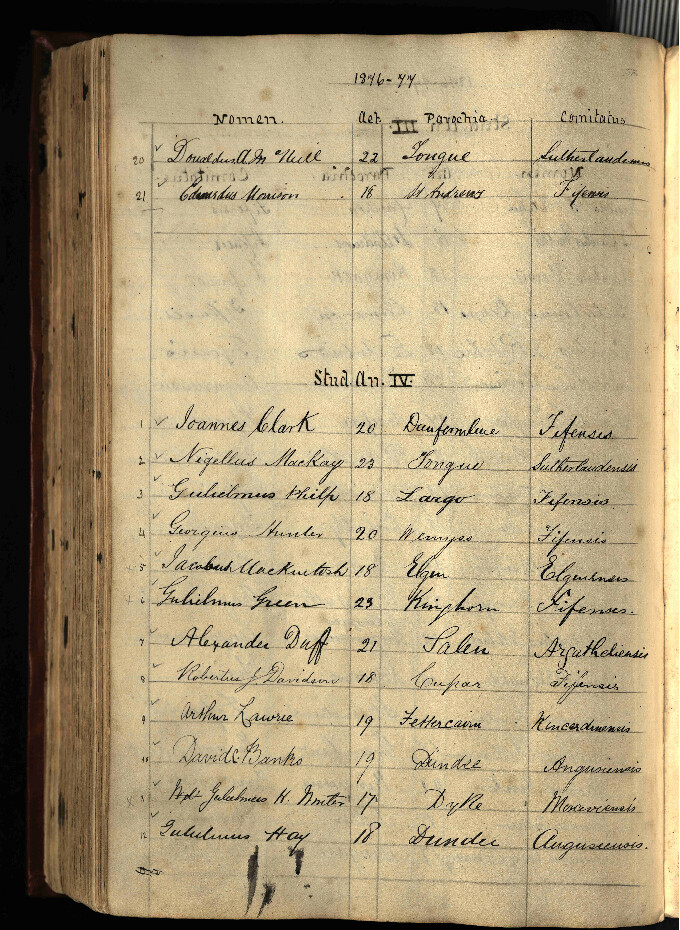 1876-77
Nomen. Aet. Parochia. Comitatus
20 Donaldus A. McNeill 22 Tongue Sutherlandensis
21 Edwardus Morrison 18 St Andrews Fifensis
Stud. An. IV.
1 Joannes Clark 20 Dunfermline Fifensis
2 Nigellus Mackay 23 Tongue Sutherlandensis
3 Gulielmus Philp 18 Largo Fifensis
4 Georgius Hunter 20 Wemyss Fifensis
5 Jacobus Mackintosh 18 Elgin Elginensis
6 Gulielmus Green 23 Kinghorn Fifensis.
7 Alexander Duff 21 Salen Argatheliensis
8 Robertus J. Davidson 18 Cupar Fifensis
9 Arthur Lawrie 19 Fettercairn Kincardinensis
10 David C. Banks 19 Dundee Angusiensis
11 Gulielmus H. 17 Dyke Moraviensis
12 Gulielmus Hay 18 Dundee Angusiensis.